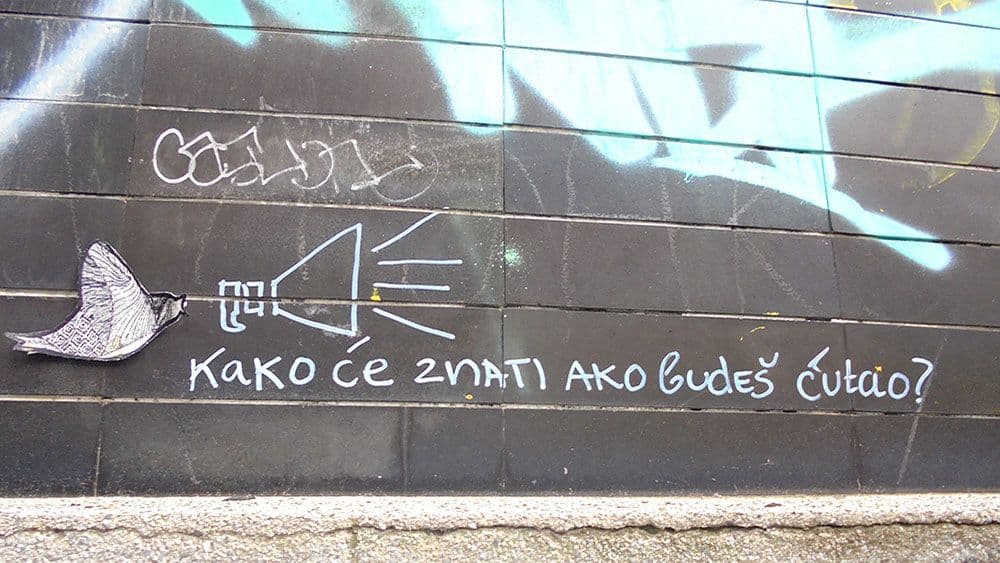 Kako će znati ako budeš ćutao?